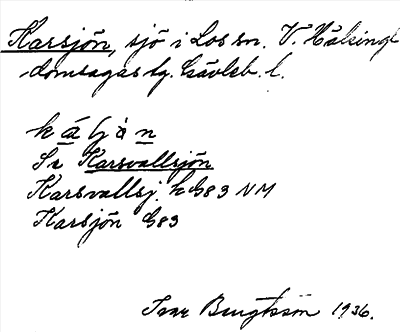 Karsjön, sjö i Los sn. V. Hälsingl
domsagas tg. Gävleb. l.
kàʃὰn
Se Karsvallsjön
Karsvallsj. kG83 NM
Karsjön G83
Ivar Bengtsson 1936.